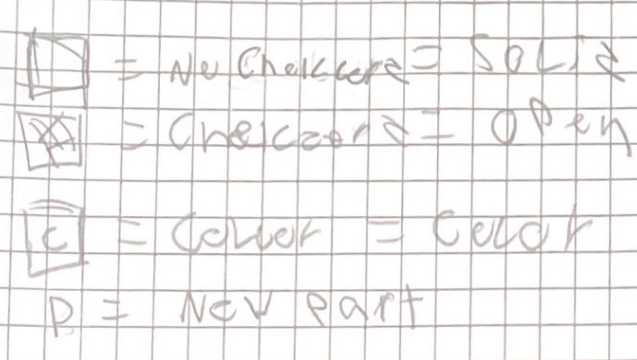 = No Cheikcerd = Solid
= Cheikcerd = Open
C = Coluor = Color
P = New part